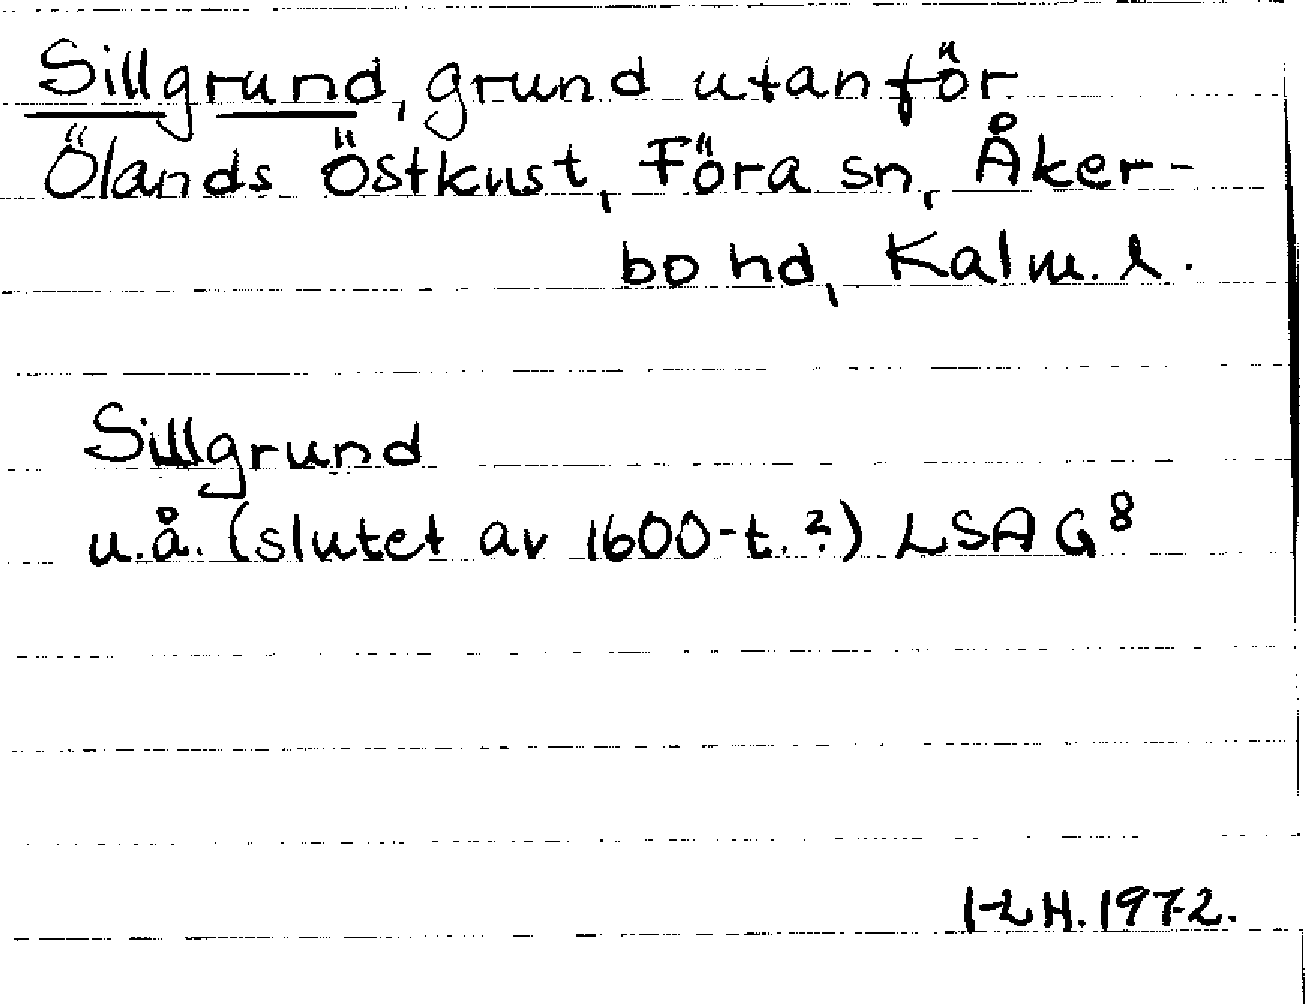 Sillgrund, grund utanför
Ölands Östkust, Föra sn, Åker-
bo hd, Kalm. l.
Sillgrund
u.å. (slutet av 1600-t.?) LSAG⁸
I-LH. 1972.